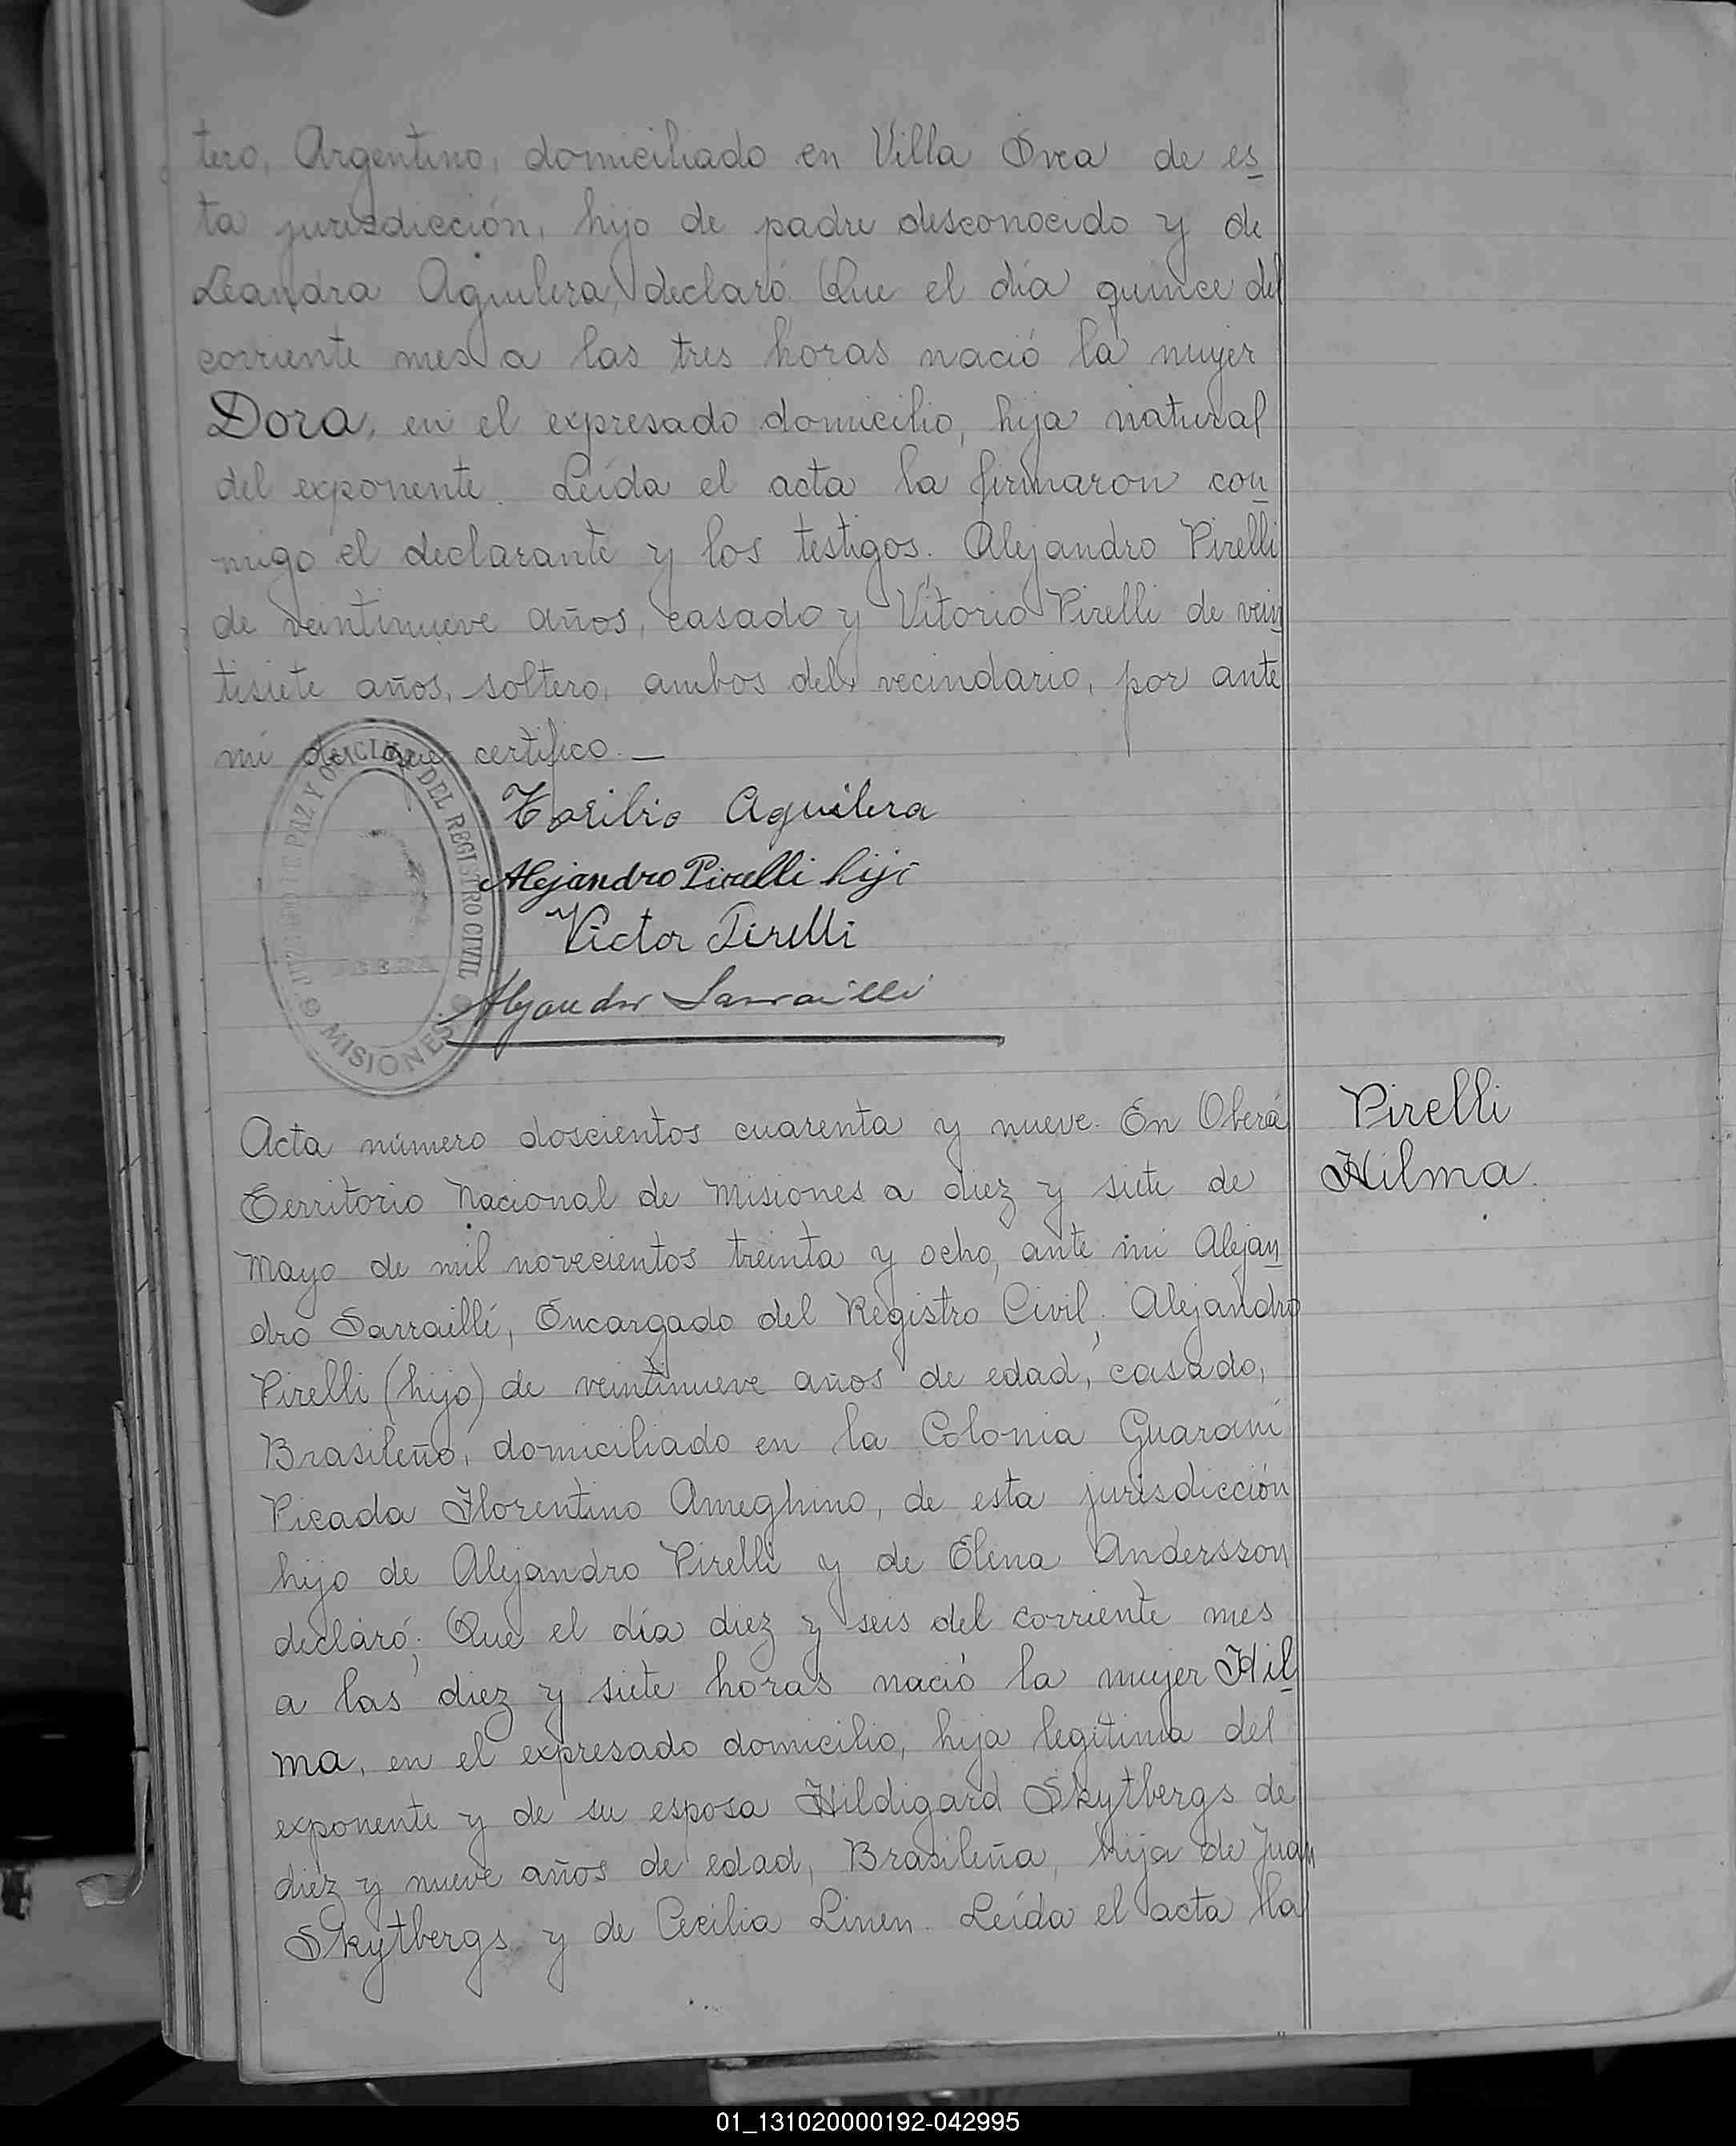 tero, Argentino, domiciliado en Villa Svea de es
ta jurisdicción, hijo de padre desconocido y de
Leandra Aguilera, declaró: Que el día quince del
corriente mes a las tres horas nació la mujer
Dora, en el expresado domicilio, hija natural
del exponente. Leída el acta la firmaron con
migo el declarante y los testigos. Alejandro Pirelli
de veintinueve años, casado y Vitorio Pirelli de vein
tisiete años, soltero, ambos del vecindario, por ante
mi de que certifico. —
JUZGADO DE PAZ Y OFICINA DEL REGISTRO CIVIL
MISIONES
Toribio Aguilera
Alejandro Pirelli hijo
Victor Pirelli
Alejandro Sarraillé
Acta número doscientos cuarenta y nueve. En Oberá
Pirelli
Hilma.
Territorio Nacional de Misiones a diez y siete de
Mayo de mil novecientos treinta y ocho, ante mi Alejan
dro Sarraillé, Encargado del Registro Civil; Alejandro
Pirelli (hijo) de veintinueve años de edad, casado,
Brasileño, domiciliado en la Colonia Guaraní
Picada Florentino Ameghino, de esta jurisdicción
hijo de Alejandro Pirelli y de Elena Andersson
declaró; Que el día diez y seis del corriente mes
a las diez y siete horas nació la mujer Hil
ma, en el expresado domicilio, hija legítima del
exponente y de su esposa Hildigard Skytbergs de
diez y nueve años de edad, Brasileña, hija de Juan
Skytbergs y de Cecilia Linen. Leída el acta la
01_131020000192-042995